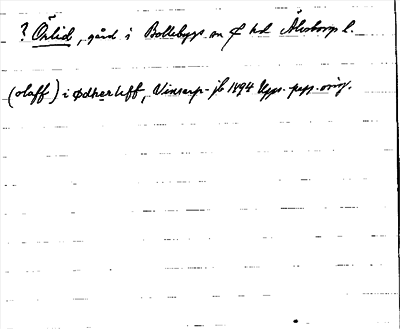 ? Örlid, gård i Bollebygds sn o hd Älvsborgs l.
(olaff) i ødherleff, Vinsarp-jb 1494 Upps. papp. orig.